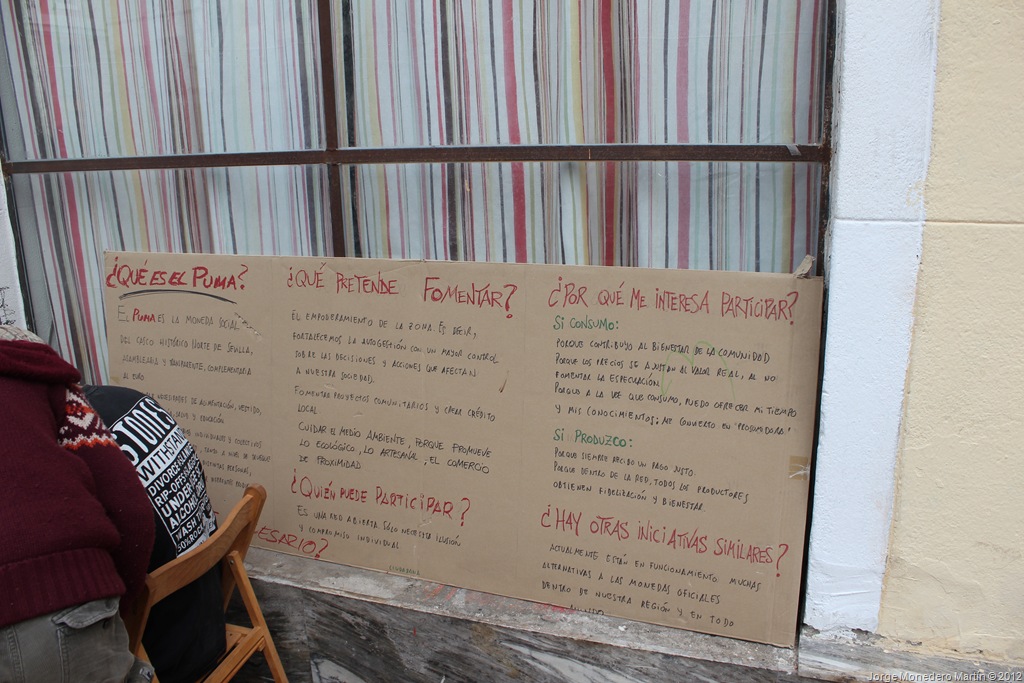 ¿QUÉ ES EL PUMA?
EL PUMA ES LA MONEDA SOCIAL
DEL CASCO HISTÓRICO NORTE DE SEVILLA,
ASAMBLEARIA Y TRANSPARENTE, COMPLEMENTARIA
AL EURO.
NECESIDADES DE ALIMENTACIÓN, VESTIDO,
Y EDUCACIÓN
INDIVIDUALES Y COLECTIVOS
PERSONAS,
ESARIO?
¿QUÉ PRETENDE FOMENTAR?
EL EMPODERAMIENTO DE LA ZONA. ES DECIR,
FORTALECEMOS LA AUTOGESTIÓN CON UN MAYOR CONTROL
SOBRE LAS DECISIONES Y ACCIONES QUE AFECTAN
A NUESTRA SOCIEDAD.
FOMENTAR PROYECTOS COMUNITARIOS Y CREAR CRÉDITO
LOCAL
CUIDAR EL MEDIO AMBIENTE, PORQUE PROMUEVE
LO ECOLÓGICO, LO ARTESANAL, EL COMERCIO
DE PROXIMIDAD
¿QUIÉN PUEDE PARTICIPAR?
ES UNA RED ABIERTA. SÓLO NECESITA ILUSIÓN
Y COMPROMISO INDIVIDUAL
CIUDADANA
¿POR QUÉ ME INTERESA PARTICIPAR?
SI CONSUMO:
PORQUE CONTRIBUYO AL BIENESTAR DE LA COMUNIDAD
PORQUE LOS PRECIOS SE AJUSTAN AL VALOR REAL, AL NO
FOMENTAR LA ESPECULACIÓN
PORQUE A LA VEZ QUE CONSUMO, PUEDO OFRECER MI TIEMPO
Y MIS CONOCIMIENTOS; ME CONVIERTO EN "PROSUMIDORA"
SI PRODUZCO:
PORQUE SIEMPRE RECIBO UN PAGO JUSTO.
PORQUE DENTRO DE LA RED, TODOS LOS PRODUCTORES
OBTIENEN FIDELIZACIÓN Y BIENESTAR.
¿HAY OTRAS INICIATIVAS SIMILARES?
ACTUALMENTE ESTÁN EN FUNCIONAMIENTO MUCHAS
ALTERNATIVAS A LAS MONEDAS OFICIALES
DENTRO DE NUESTRA REGIÓN Y EN TODO
MUNDO
STONES
WITHSTAN
DIVORCE
RIP-OFF
UNDER
A CON
WASH
50%
Jorge Monedero Martín © 2012